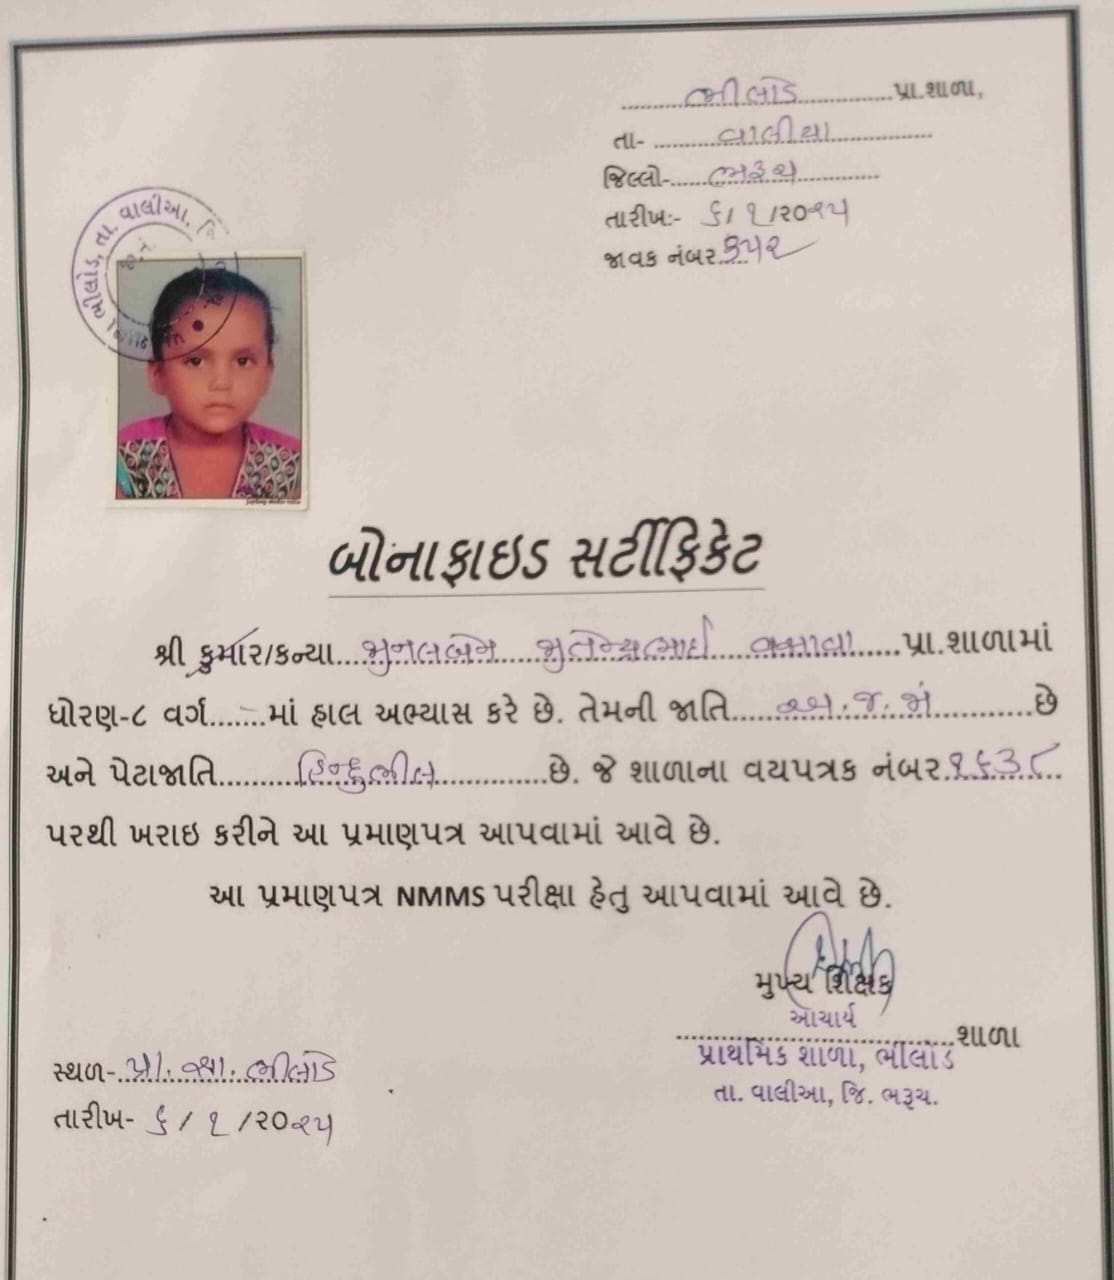 ભીલોડ પ્રા.શાળા,
તા- વાલીયા
જિલ્લો- ભરૂચ
તારીખ:- ૬/૧/૨૦૨૫
જાવક નંબર ૩૫૨
ભીલોડ, તા. વાલીઆ,
બોનાફાઇડ સર્ટીફિકેટ
શ્રી કુમાર/કન્યા વસાવા પ્રા.શાળામાં
ધોરણ-૮ વર્ગ.......માં હાલ અભ્યાસ કરે છે. તેમની જાતિ અ.જ.જા છે
અને પેટાજાતિ હિન્દુભીલ છે. જે શાળાના વયપત્રક નંબર ૧૬૩૮
પરથી ખરાઇ કરીને આ પ્રમાણપત્ર આપવામાં આવે છે.
આ પ્રમાણપત્ર NMMS પરીક્ષા હેતુ આપવામાં આવે છે.
મુખ્ય શિક્ષક
આચાર્ય
શાળા
પ્રાથમિક શાળા, ભીલોડ
તા. વાલીઆ, જિ. ભરૂચ.
સ્થળ- પ્રા. શા. ભીલોડ
તારીખ- ૬/૧/૨૦૨૫